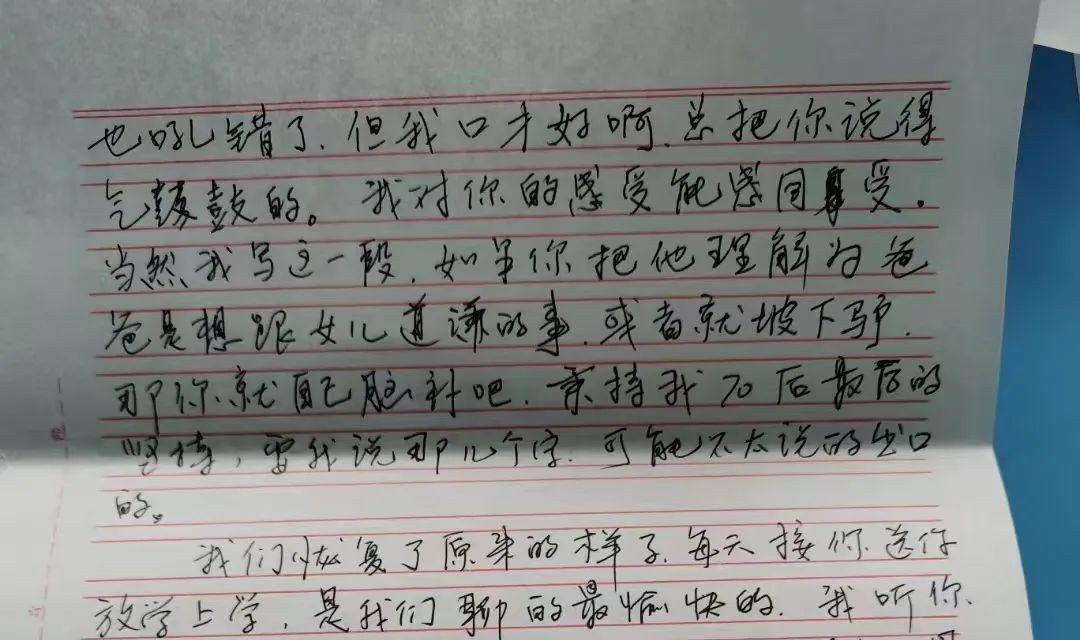 也吼错了.但我口才好啊.总把你说得
气鼓鼓的。我对你的感受能感同身受.
当然我写这一段.如果你把他理解为爸
爸是想跟女儿道谦的事.或者就坡下驴.
那你就自己脑补吧.秉持我70后最后的
坚持,要我说那几个字.可能不太说的出口
的。
我们恢复了原来的样子.每天接你.送你
放学上学,是我们聊的最愉快的.我听你